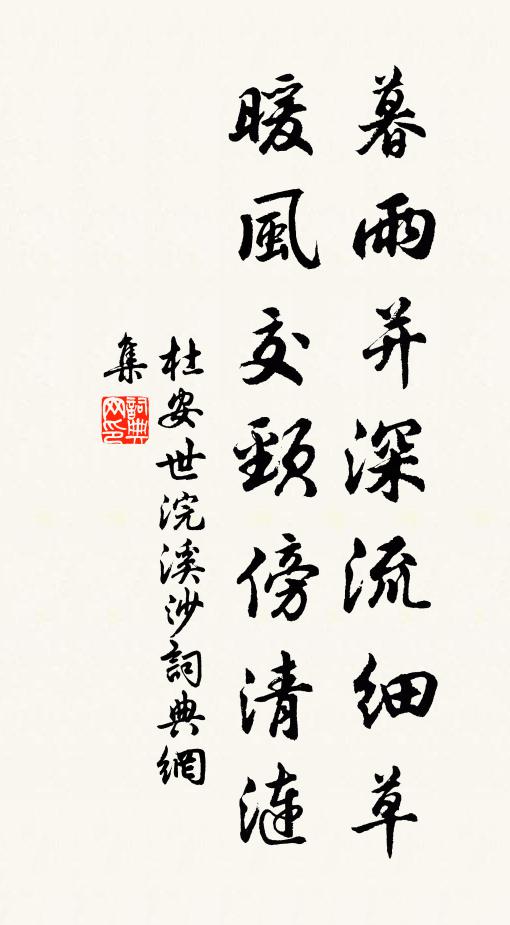 暮雨并深流細草
暖風交頸傍清漣
杜安世浣溪沙詞典網
集
詞典网印